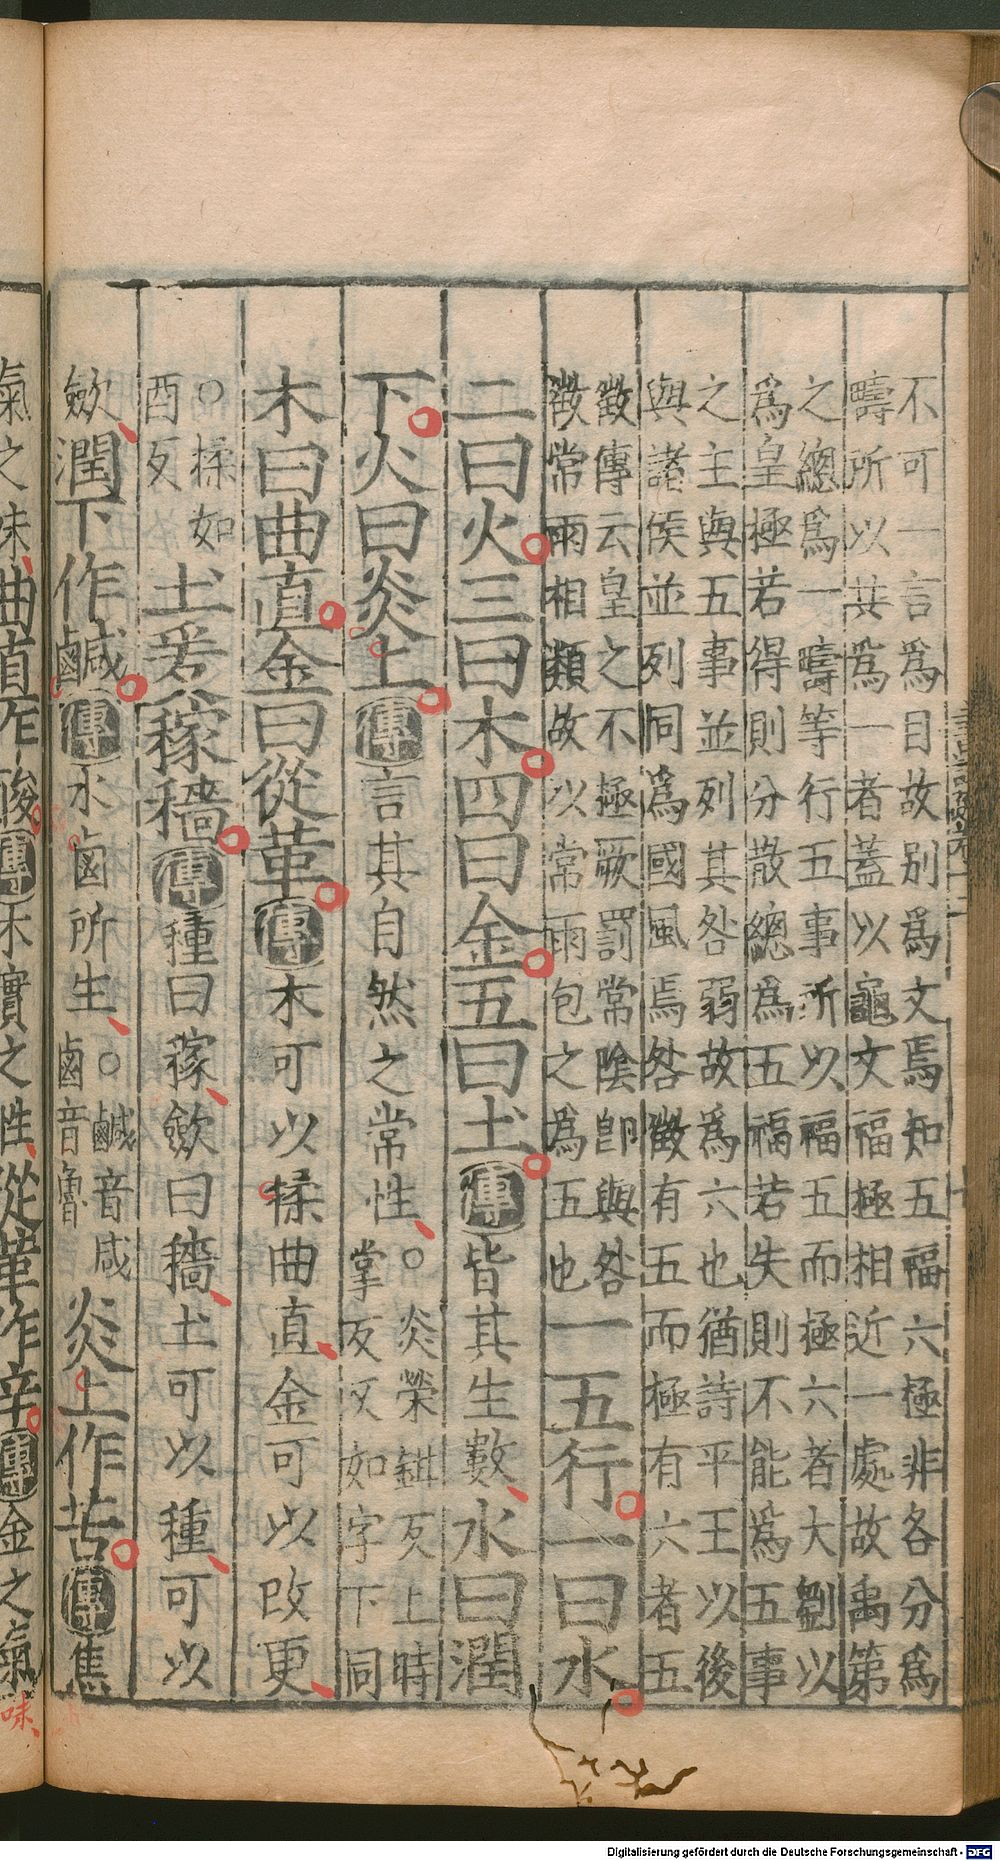 不可一言爲目故別爲文焉知五福六極非各分爲
疇所以共爲一者蓋以龜文福極相近一處故禹第
之總爲一疇等行五事所以福五而極六者大劉以
爲皇極若得則分散總爲五福若失則不能爲五事
之主與五事並列其咎弱故爲六也猶詩平王以後
與諸侯並列同爲國風焉咎徵有五而極有六者五
徵傳云皇之不極厥罰常陰即與咎
徵常雨相類故以常雨包之爲五也
一五行一曰水
二曰火三曰木四曰金五曰土傳皆其生數水曰潤
下火曰炎上傳言其自然之常性
○炎榮鉗反上時
掌反又如字下同
木曰曲直金曰從革傳木可以揉曲直金可以改更
○揉如
酉反
土爰稼穡傳種曰稼斂曰穡土可以種可以
斂潤下作鹹傳水鹵所生
○鹹音咸
鹵音魯
炎上作苦傳焦
氣之味曲直作酸傳木實之性從革作辛傳金之氣
味
Digitalisierung gefördert durch die Deutsche Forschungsgemeinschaft - DFG